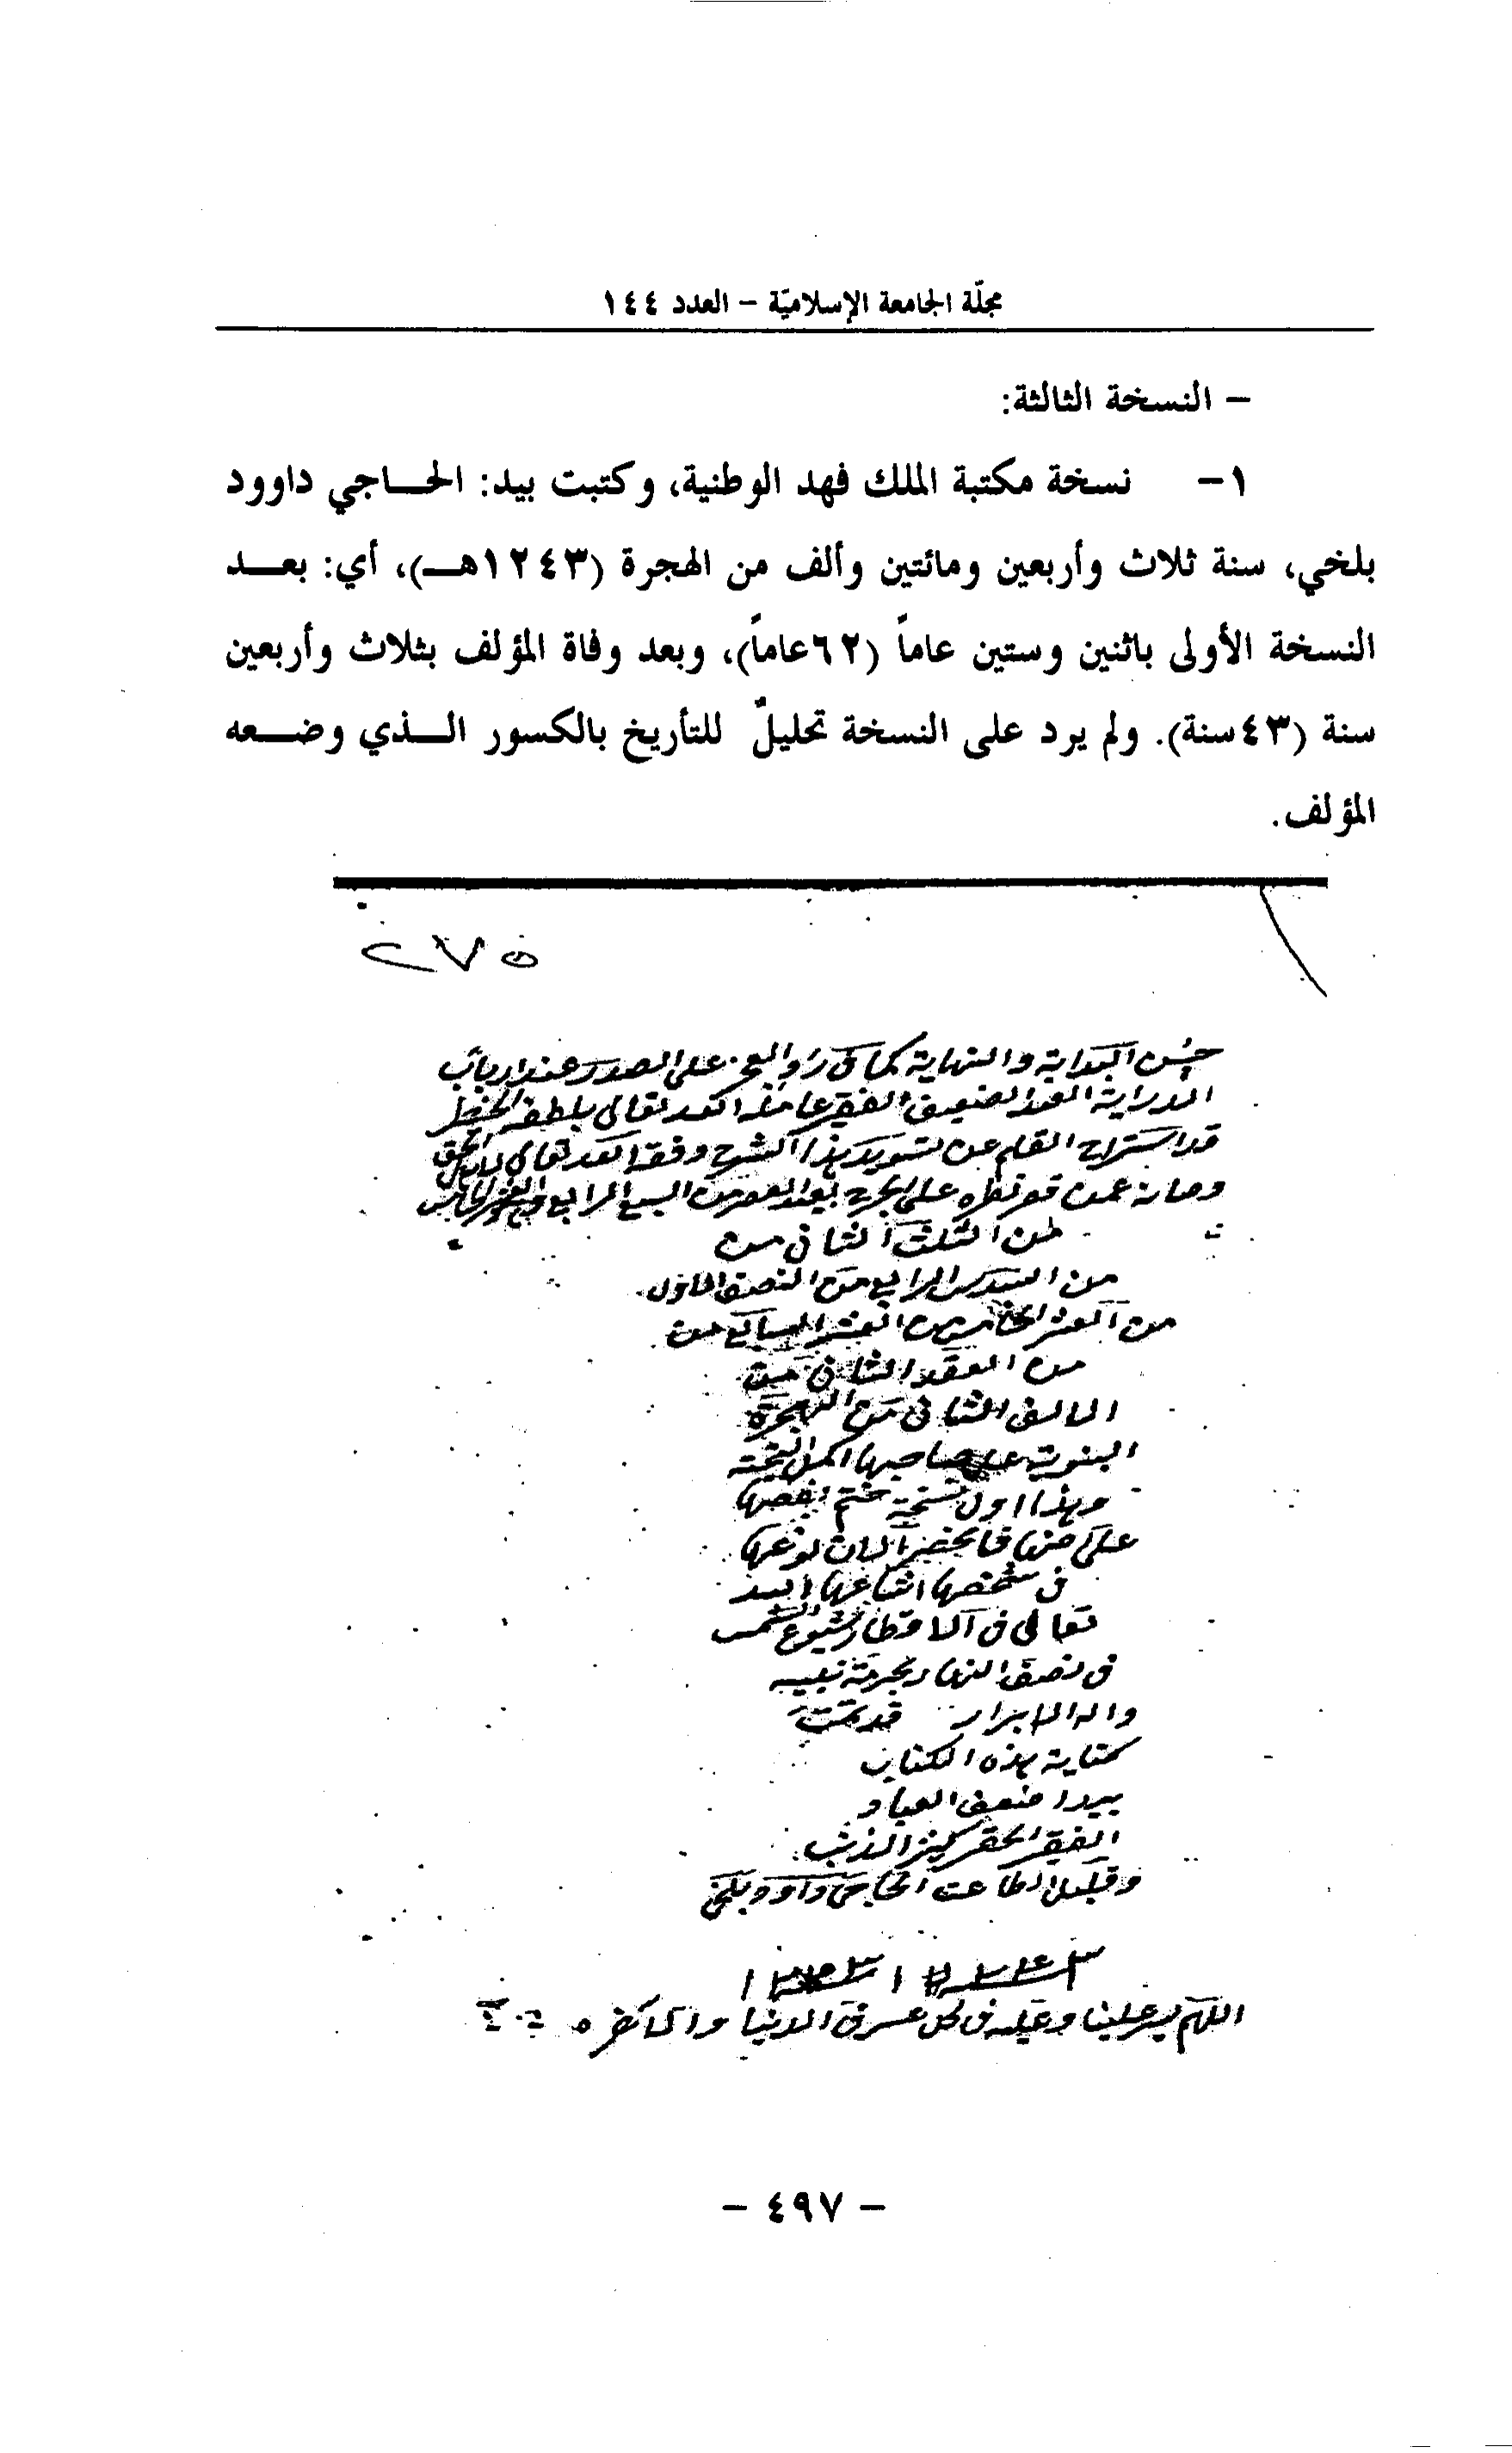 مجلّة الجامعة الإسلاميّة – العدد ١٤٤
– النسخة الثالثة:
١- نسخة مكتبة الملك فهد الوطنية، وكتبت بيد: الحاجي داوود
بلخي، سنة ثلاث وأربعين ومائتين وألف من الهجرة (١٢٤٣هـ)، أي: بعد
النسخة الأولى باثنين وستين عاماً (٦٢عاماً)، وبعد وفاة المؤلف بثلاث وأربعين
سنة (٤٣سنة). ولم يرد على النسخة تحليلٌ للتأريخ بالكسور الذي وضعه
المؤلف.
٢٧٥
حسن البداية والنهاية كما في على الصدر عند ارباب
الدراية العبد الضعيف الفقير عامله الله تعالى بلطفه
قد استراح القلم عن تسويد هذا الشرح وفقه الله تعالى
وصانه عمن على العصر من السبع الرابع
من الثلث الثاني من
من السدس الرابع من النصف الاول
من العشر الخامس من العشر السابع من
من العقد الثاني من
الالف الثاني من الهجرة
النبوية على صاحبها اكمل التحية
وهذا اول نسخة ختم
على الان نوعها
في شخصها اشاعها الله
تعالى في الاقطار شيوع الشمس
في نصف النهار بحرمة نبيه
واله الابرار قد تمت
كتابة هذه الكتاب
بيد اضعف العباد
الفقير الحقير كثير الذنب
وقليل الطاعت الحاجي داوود بلخي
١٢٤٣
اللهم يسر علينا وعليه في كل عسر في الدنيا والاخره
– ٤٩٧ –